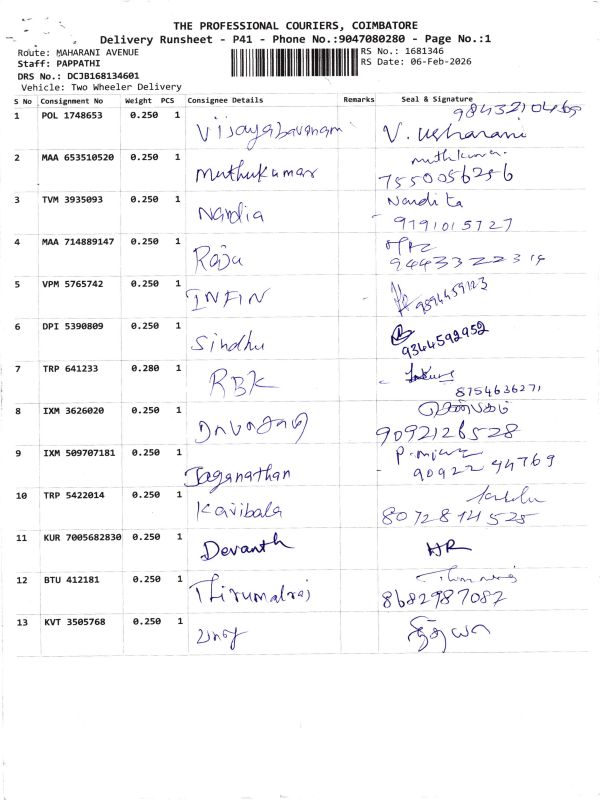 THE PROFESSIONAL COURIERS, COIMBATORE
Delivery Runsheet - P41 - Phone No.:9047080280 - Page No.:1
Route: MAHARANI AVENUE RS No.: 1681346
Staff: PAPPATHI RS Date: 06-Feb-2026
DRS No.: DCJB168134601
Vehicle: Two Wheeler Delivery
S No Consignment No Weight PCS Consignee Details Remarks Seal & Signature
1 POL 1748653 0.250 1 9843210469
V. Usharani
2 MAA 653510520 0.250 1 Muthukumar
7550056256
3 TVM 3935093 0.250 1 Nandita
9191015727
4 MAA 714889147 0.250 1 Raju
9443322314
5 VPM 5765742 0.250 1 INFIN 9894459123
6 DPI 5390809 0.250 1 Sindhu 9344592952
7 TRP 641233 0.280 1 RBK
8754636271
8 IXM 3626020 0.250 1
9092126528
9 IXM 509707181 0.250 1 Jaganathan
90922 44769
10 TRP 5422014 0.250 1 Kavibala
8072814525
11 KUR 7005682830 0.250 1 Devanth HR
12 BTU 412181 0.250 1 Thirumalraj
8682987087
13 KVT 3505768 0.250 1